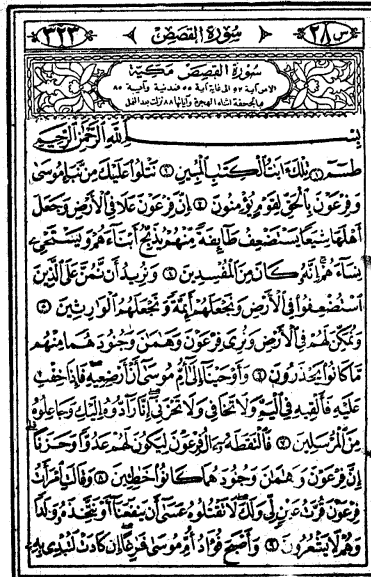 س ٢٨ سورة القصص ٣٢٣
سورة القصص مكية
الا من آية ٥٢ الى غاية آية ٥٥ فمدنية وآية ٨٥
فبالجحفة اثناء الهجرة وآياتها ٨٨ نزلت بعد النمل
بسم الله الرحمن الرحيم
طسم ۝١ تلك ءايت الكتب المبين ۝٢ نتلوا عليك من نبإ موسى
وفرعون بالحق لقوم يؤمنون ۝٣ إن فرعون علا في الأرض وجعل
أهلها شيعا يستضعف طائفة منهم يذبح أبناءهم ويستحيء
نساءهم إنه كان من المفسدين ۝٤ ونريد أن نمن على الذين
استضعفوا في الأرض ونجعلهم أئمة ونجعلهم الوارثين ۝٥
ونمكن لهم في الأرض ونري فرعون وهمن وجنودهما منهم
ما كانوا يحذرون ۝٦ وأوحينا إلى أم موسى أن أرضعيه فإذا خفت
عليه فألقيه في اليم ولا تخافي ولا تحزني إنا رادوه إليك وجاعلوه
من المرسلين ۝٧ فالتقطه ءال فرعون ليكون لهم عدوا وحزنا
إن فرعون وهمن وجنودهما كانوا خطين ۝٨ وقالت امرأت
فرعون قرت عين لي ولك لا تقتلوه عسى أن ينفعنا أو نتخذه ولدا
وهم لا يشعرون ۝٩ وأصبح فؤاد أم موسى فرغا إن كادت لتبدي به